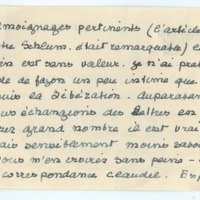 témoignages pertinents (l'article
tre Schlum. était remarquable) et
en est sans valeur. Je n'ai prat
de de façon un peu intime que
uis la Libération. Auparavan
us échangeons des lettres en
rez grand nombre il est vrai
ais sensiblement moins savou
Vous m'en croirez sans peine -
correspondance Claudel. En